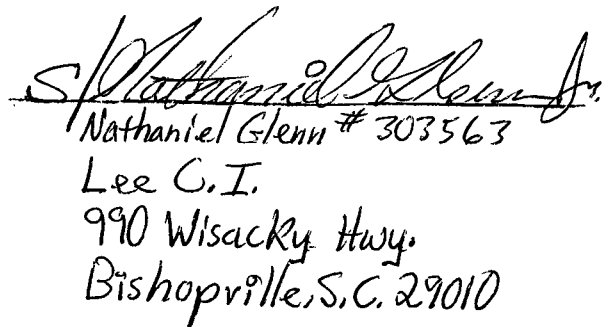 s/Nathaniel Glenn Jr.
Nathaniel Glenn # 303563
Lee C.I.
990 Wisacky Hwy.
Bishopville, S.C. 29010